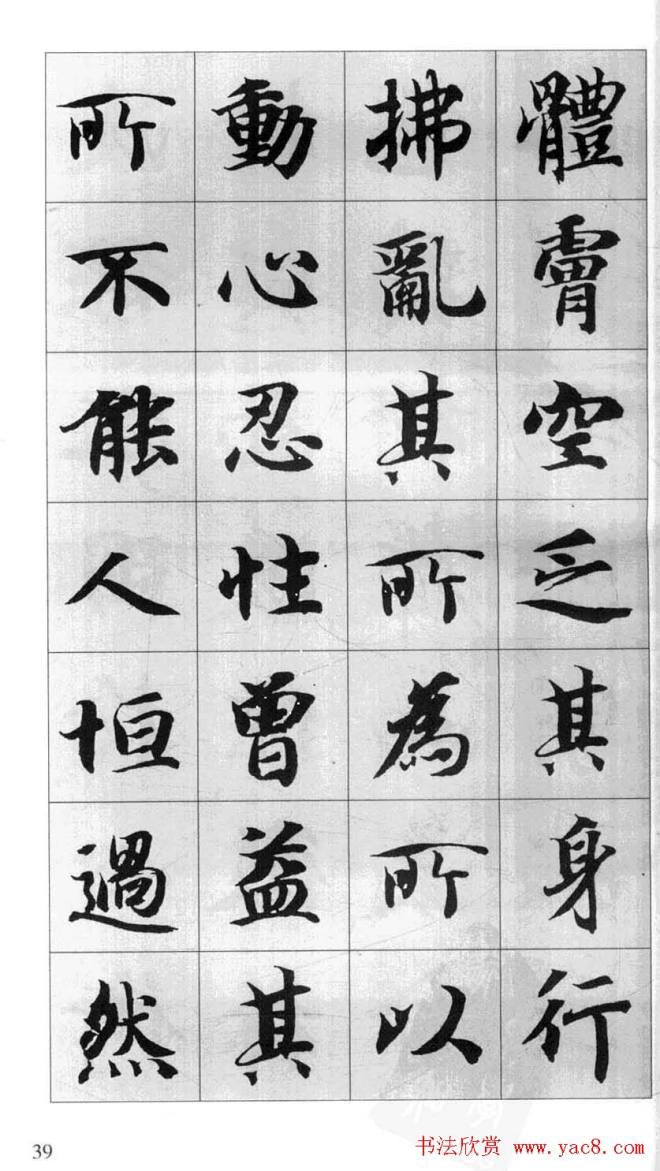 體膚空乏其身行
拂亂其所為所以
動心忍性曾益其
所不能人恒過然
39
书法欣赏 www.yac8.com